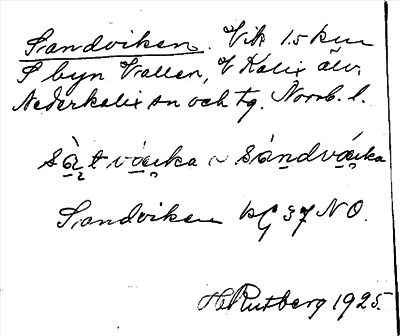 Sandviken. Vik 1.5 km
S byn Vallen, V Kalix älv.
Nederkalix sn och tg. Norrb. l.
~ 
Sandviken kG 37 NO.
H. Rutberg 1925.